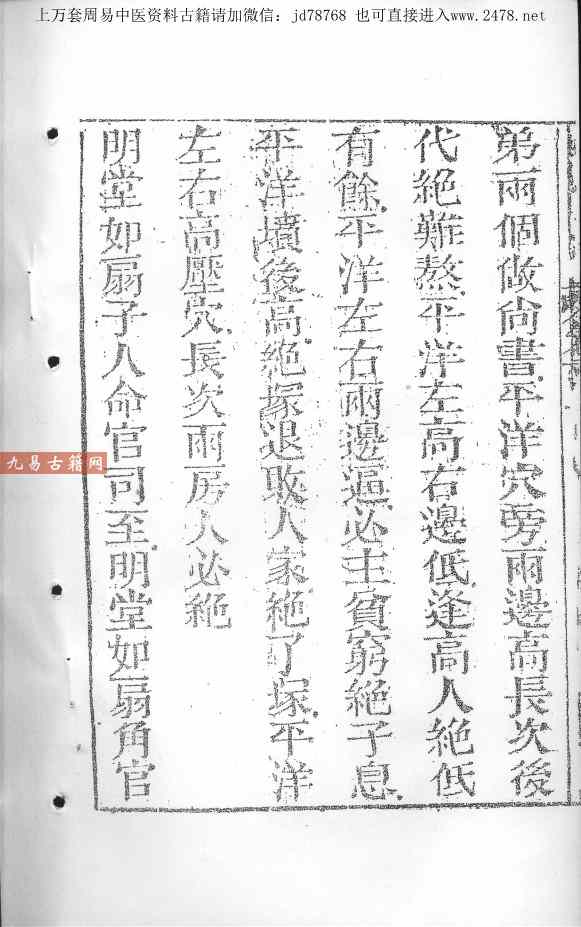 上万套周易中医资料古籍请加微信：jd78768 也可直接进入www.2478.net
弟兩個做尚書平洋穴旁兩邊高長次後
代絕難熬平洋左高右邊低逢高人絕低
有餘平洋左右兩邊逼必主貧窮絕子息
平洋墳後高絕塚退敗人家絕了塚平洋
左右高壓穴長次兩房人必絕
明堂如扇子人命官司至明堂如扇角官
九易古籍网